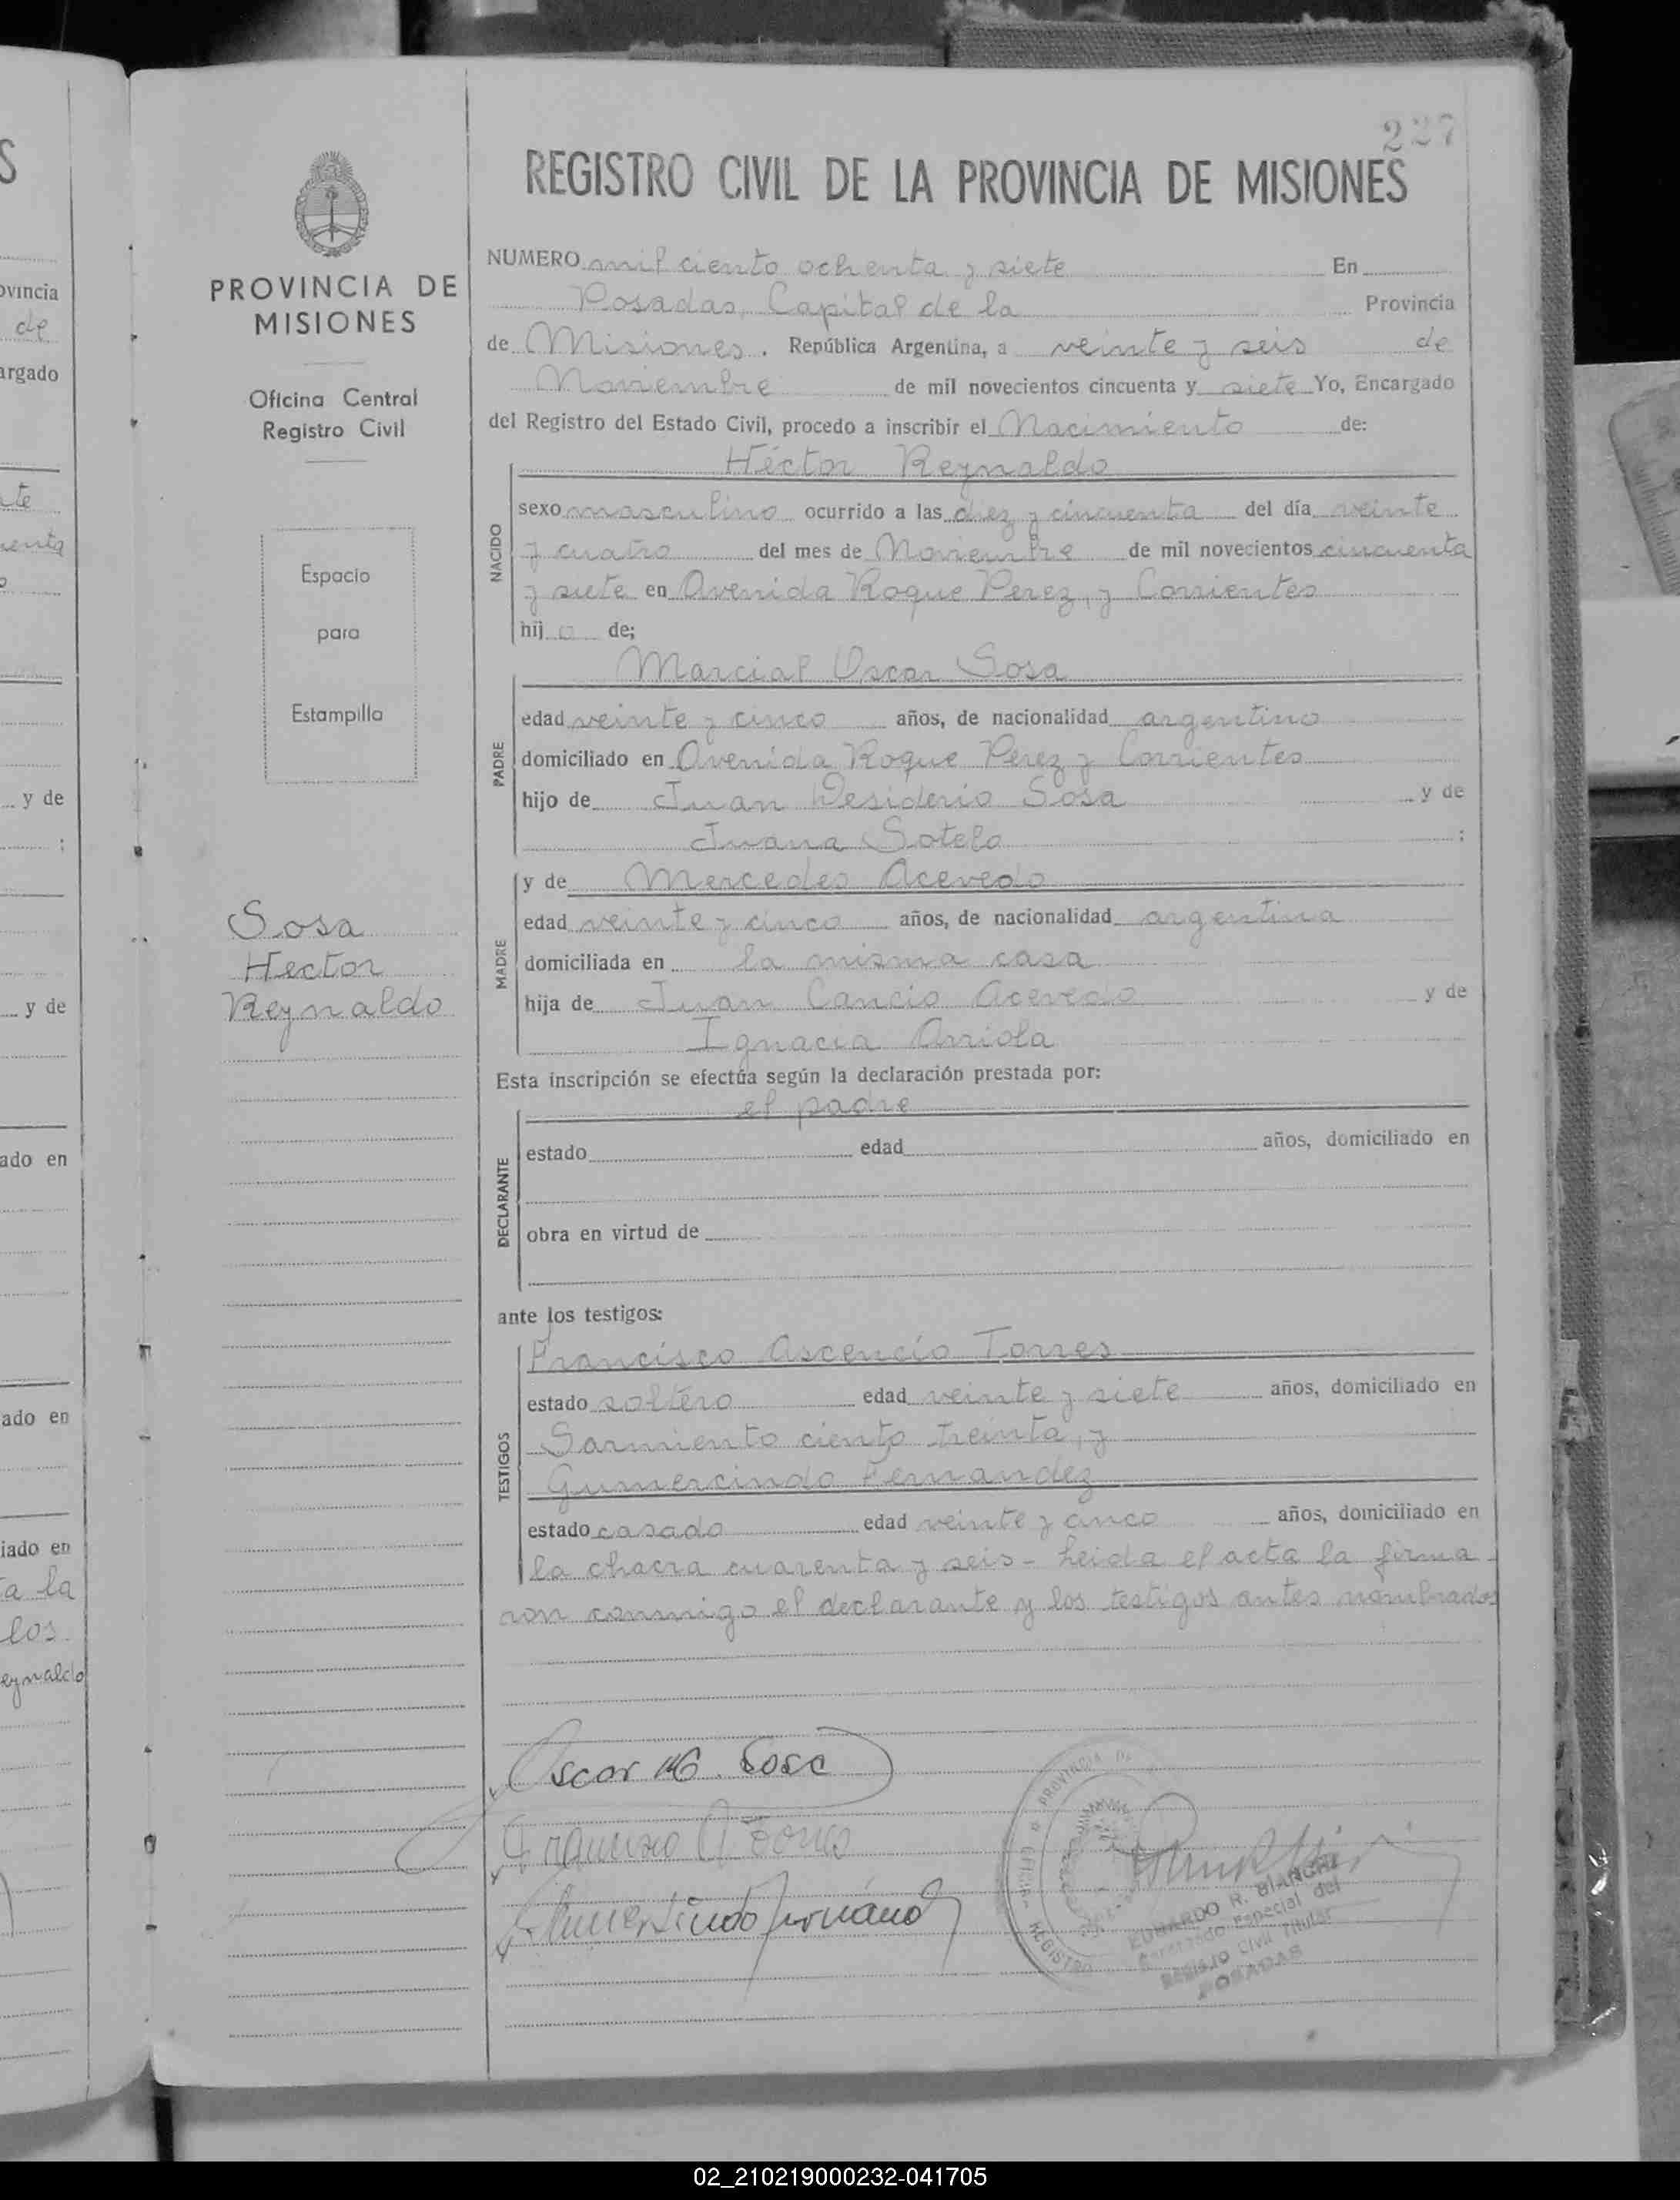 227
REGISTRO CIVIL DE LA PROVINCIA DE MISIONES
PROVINCIA DE
MISIONES
Oficina Central
Registro Civil
Espacio
para
Estampilla
Sosa
Hector
Reynaldo
NUMERO mil ciento ochenta y siete En
Posadas, Capital de la Provincia
de Misiones. República Argentina, a veinte y seis de
Noviembre de mil novecientos cincuenta y siete Yo, Encargado
del Registro del Estado Civil, procedo a inscribir el Nacimiento de:
NACIDO
Héctor Reynaldo
sexo masculino ocurrido a las diez y cincuenta del día veinte
y cuatro del mes de Noviembre de mil novecientos cincuenta
y siete en Avenida Roque Perez, y Corrientes
hij o de;
PADRE
Marcial Oscar Sosa
edad veinte y cinco años, de nacionalidad argentino
domiciliado en Avenida Roque Perez y Corrientes
hijo de Juan Desiderio Sosa y de
Juana Sotelo ;
MADRE
y de Mercedes Acevedo
edad veinte y cinco años, de nacionalidad argentina
domiciliada en la misma casa
hija de Juan Cancio Acevedo y de
Ignacia Arriola
Esta inscripción se efectúa según la declaración prestada por:
DECLARANTE
el padre
estado edad años, domiciliado en
obra en virtud de
ante los testigos:
TESTIGOS
Francisco Ascencio Torres
estado soltero edad veinte y siete años, domiciliado en
Sarmiento ciento treinta, y
Gumercindo Fernandez
estado casado edad veinte y cinco años, domiciliado en
la chacra cuarenta y seis - Leida el acta la firma
ron conmigo el declarante y los testigos antes nombrados
Oscar M. Sosa
Francisco A Torres
Gumersindo Fernández
PROVINCIA DE
REGISTRO
EDUARDO R. BIANCHI
Encargado Especial del
Registro Civil Titular
POSADAS
ovincia
de
argado
y de
y de
ado en
ado en
iado en
a la
los
eynaldo
02_210219000232-041705